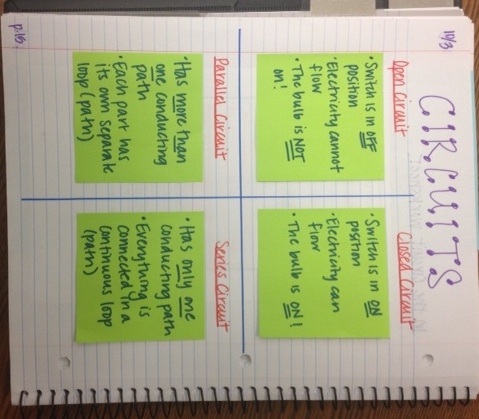 10/3
C.I.R.C.U.I.T.S
Open Circuit
• Switch is in OFF
position
• Electricity cannot
flow
• The bulb is NOT
on!
Closed Circuit
• Switch is in ON
position
• Electricity can
flow
• The bulb is ON!
Parallel Circuit
• Has more than
one conducting
path
• Each part has
its own separate
loop (path)
Series Circuit
• Has only one
conducting path
• Everything is
connected in a
continuous loop
(path)